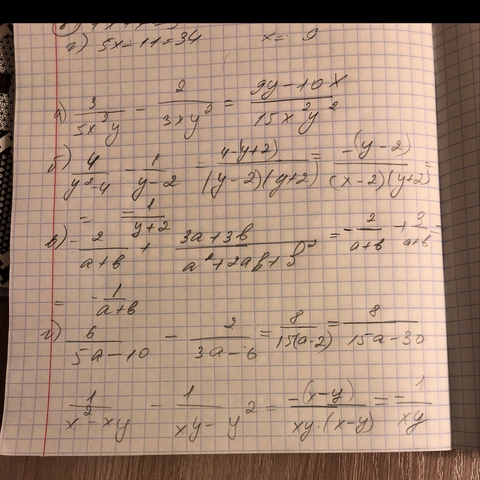 г) 5x - 11 = 34 x = 9
а) 3/(5x²y) - 2/(3xy²) = (9y - 10x)/(15x²y²)
б) 4/(y²-4) - 1/(y-2) = (4-(y+2))/((y-2)(y+2)) = -(y-2)/((x-2)(y+2)) =
= = -1/(y+2)
в) -2/(a+b) + (3a+3b)/(a²+2ab+b²) = -2/(a+b) + 3/(a+b) =
= -1/(a+b)
г) 6/(5a-10) - 2/(3a-6) = 8/(15(a-2)) = 8/(15a-30)
1/(x²-xy) - 1/(xy-y²) = -(x-y)/(xy·(x-y)) = -1/(xy)